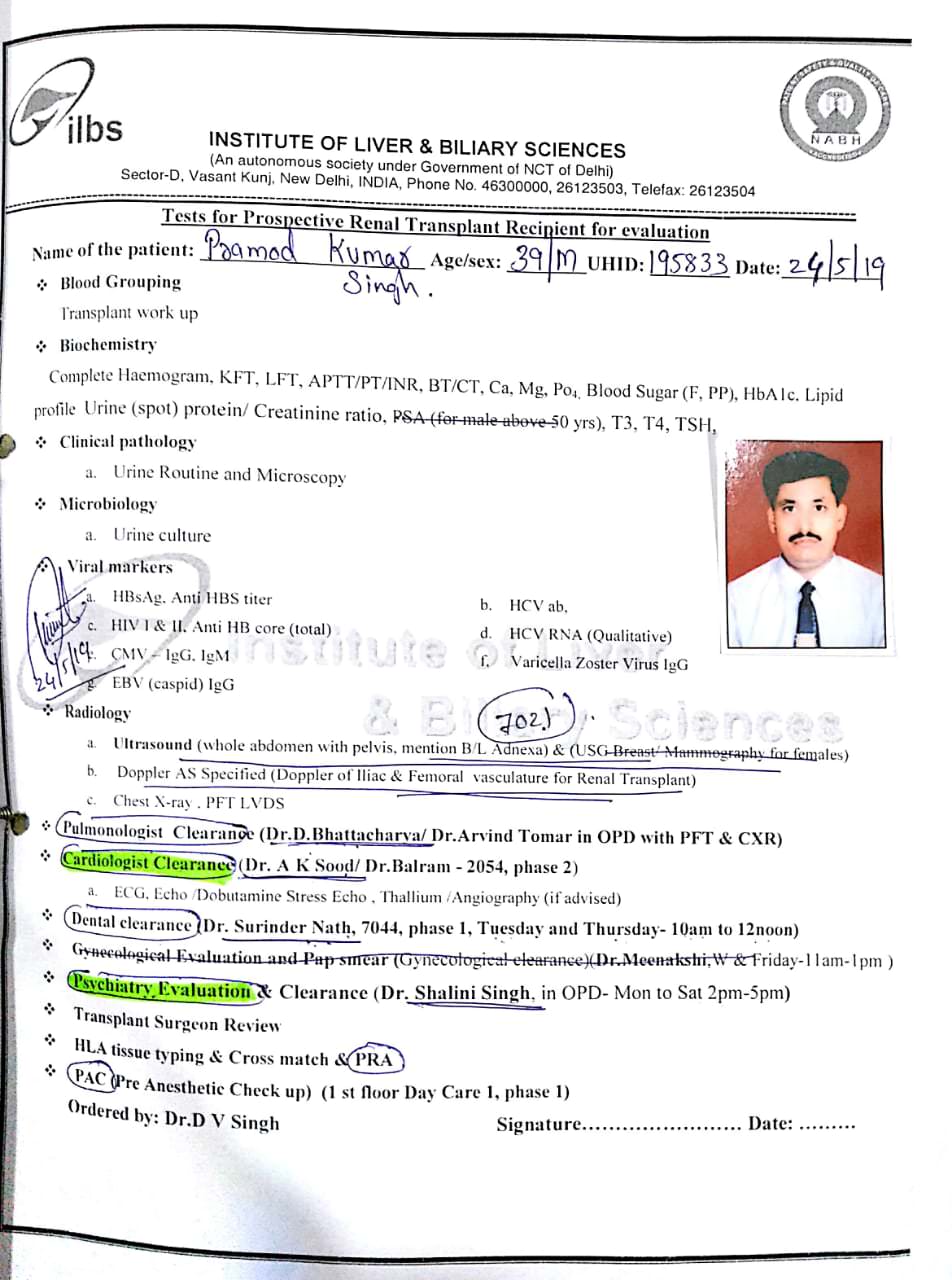 ilbs
NABH
INSTITUTE OF LIVER & BILIARY SCIENCES
(An autonomous society under Government of NCT of Delhi)
Sector-D, Vasant Kunj, New Delhi, INDIA, Phone No. 46300000, 26123503, Telefax: 26123504
Tests for Prospective Renal Transplant Recipient for evaluation
Name of the patient: Pramod Kumar Age/sex: 39/M UHID: 195833 Date: 24/5/19
Singh.
❖ Blood Grouping
Transplant work up
❖ Biochemistry
Complete Haemogram, KFT, LFT, APTT/PT/INR, BT/CT, Ca, Mg, Po4, Blood Sugar (F, PP), HbA1c, Lipid
profile Urine (spot) protein/ Creatinine ratio, PSA (for male above 50 yrs), T3, T4, TSH,
❖ Clinical pathology
a. Urine Routine and Microscopy
❖ Microbiology
a. Urine culture
❖ Viral markers
a. HBsAg, Anti HBS titer
b. HCV ab,
c. HIV I & II, Anti HB core (total)
d. HCV RNA (Qualitative)
CMV – IgG, IgM
f. Varicella Zoster Virus IgG
24/5/19
g. EBV (caspid) IgG
Institute of Liver
& Biliary Sciences
❖ Radiology
7021
a. Ultrasound (whole abdomen with pelvis, mention B/L Adnexa) & (USG Breast/ Mammography for females)
b. Doppler AS Specified (Doppler of Iliac & Femoral vasculature for Renal Transplant)
c. Chest X-ray . PFT LVDS
❖ Pulmonologist Clearance (Dr.D.Bhattacharva/ Dr.Arvind Tomar in OPD with PFT & CXR)
❖ Cardiologist Clearance (Dr. A K Sood/ Dr.Balram - 2054, phase 2)
a. ECG, Echo /Dobutamine Stress Echo , Thallium /Angiography (if advised)
❖ Dental clearance (Dr. Surinder Nath, 7044, phase 1, Tuesday and Thursday- 10am to 12noon)
❖ Gynecological Evaluation and Pap smear (Gynecological clearance)(Dr.Meenakshi,W & Friday-11am-1pm )
❖ Psychiatry Evaluation & Clearance (Dr. Shalini Singh, in OPD- Mon to Sat 2pm-5pm)
❖ Transplant Surgeon Review
❖ HLA tissue typing & Cross match & PRA
❖ PAC (Pre Anesthetic Check up) (1 st floor Day Care 1, phase 1)
Ordered by: Dr.D V Singh
Signature........................ Date: .........